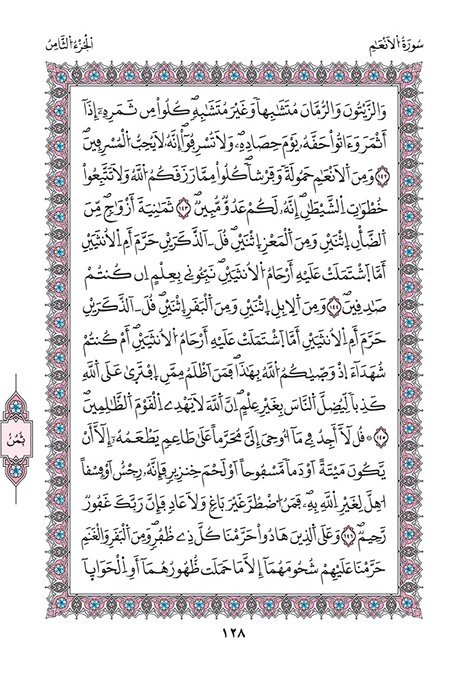 سُورَةُ الْأَنْعَٰمِ
الْجُزْءُ الثَّامِنُ
وَالزَّيْتُونَ وَالرُّمَّانَ مُتَشَٰبِهاٗ وَغَيْرَ مُتَشَٰبِهٖۖ كُلُواْ مِن ثَمَرِهِۦٓ إِذَآ
أَثْمَرَ وَءَاتُواْ حَقَّهُۥ يَوْمَ حِصَادِهِۦۖ وَلَا تُسْرِفُوٓاْۖ إِنَّهُۥ لَا يُحِبُّ الْمُسْرِفِينَۖ
١٤٢ وَمِنَ الْأَنْعَٰمِ حَمُولَةٗ وَفَرْشاٗۖ كُلُواْ مِمَّا رَزَقَكُمُ اللَّهُ وَلَا تَتَّبِعُواْ
خُطْوَٰتِ الشَّيْطَٰنِۖ إِنَّهُۥ لَكُمْ عَدُوّٞ مُّبِينٞۖ ١٤٣ ثَمَٰنِيَةَ أَزْوَٰجٖۖ مِّنَ
الضَّأْنِ اِثْنَيْنِ وَمِنَ الْمَعْزِ اِثْنَيْنِۖ قُلَ ـآلذَّكَرَيْنِ حَرَّمَ أَمِ الْأُنثَيَيْنِ
أَمَّا اَشْتَمَلَتْ عَلَيْهِ أَرْحَامُ الْأُنثَيَيْنِۖ نَبِّـُٔونِے بِعِلْمٍ اِن كُنتُمْ
صَٰدِقِينَۖ ١٤٤ وَمِنَ الْإِبِلِ اِثْنَيْنِ وَمِنَ الْبَقَرِ اِثْنَيْنِۖ قُلَ ـآلذَّكَرَيْنِ
حَرَّمَ أَمِ الْأُنثَيَيْنِ أَمَّا اَشْتَمَلَتْ عَلَيْهِ أَرْحَامُ الْأُنثَيَيْنِۖ أَمْ كُنتُمْ
شُهَدَآءَ اِذْ وَصَّيٰكُمُ اللَّهُ بِهَٰذَاۖ فَمَنَ اَظْلَمُ مِمَّنِ اِفْتَرَىٰ عَلَى اَللَّهِ
كَذِباٗ لِّيُضِلَّ النَّاسَ بِغَيْرِ عِلْمٍۖ اِنَّ اَللَّهَ لَا يَهْدِے الْقَوْمَ الظَّٰلِمِينَۖ
١٤٥ قُل لَّآ أَجِدُ فِے مَآ أُوحِيَ إِلَيَّ مُحَرَّماً عَلَىٰ طَاعِمٖ يَطْعَمُهُۥٓ إِلَّآ أَنْ
يَّكُونَ مَيْتَةً اَوْ دَماٗ مَّسْفُوحاً اَوْ لَحْمَ خِنزِيرٖ فَإِنَّهُۥ رِجْسٌ اَوْ فِسْقاً
اُهِلَّ لِغَيْرِ اِللَّهِ بِهِۦۖ فَمَنُ اُضْطُرَّ غَيْرَ بَاغٖ وَلَا عَادٖ فَإِنَّ رَبَّكَ غَفُورٞ
رَّحِيمٞۖ ١٤٦ وَعَلَى اَلذِينَ هَادُواْ حَرَّمْنَا كُلَّ ذِے ظُفُرٖۖ وَمِنَ الْبَقَرِ وَالْغَنَمِ
حَرَّمْنَا عَلَيْهِمْ شُحُومَهُمَآ إِلَّا مَا حَمَلَت ظُّهُورُهُمَآ أَوِ الْحَوَايَآ
ثُمُنُ
١٢٨